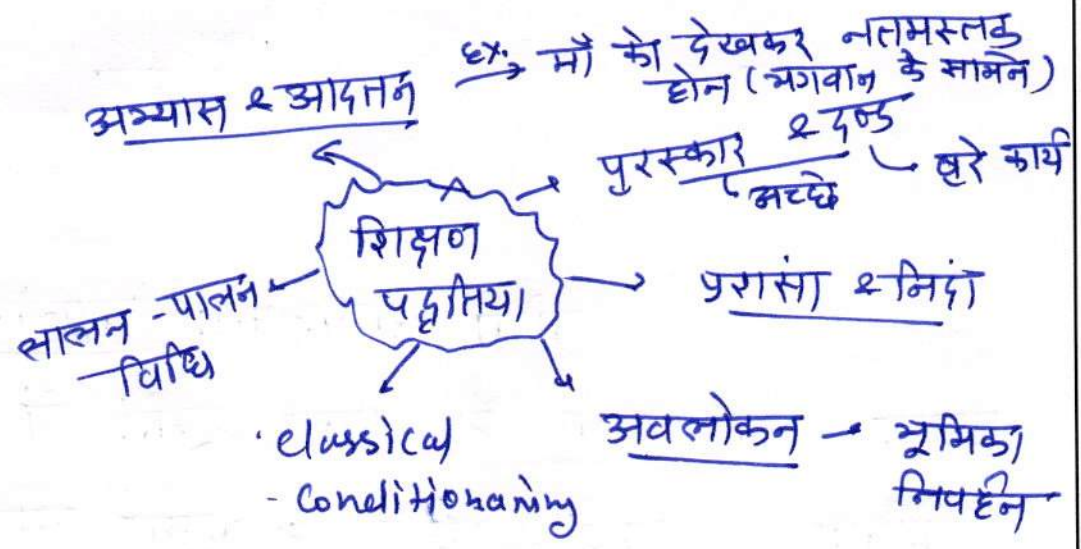 अभ्यास & आदतन
Ex. माँ को देखकर नतमस्तक
होन (भगवान के सामने)
पुरस्कार & दण्ड
अच्छे
बुरे कार्य
शिक्षण
पद्धतिया
प्रशसां & निदां
लालन - पालन
विधि
classical
- Conditionaning
अवलोकन - भूमिका
निवर्हन